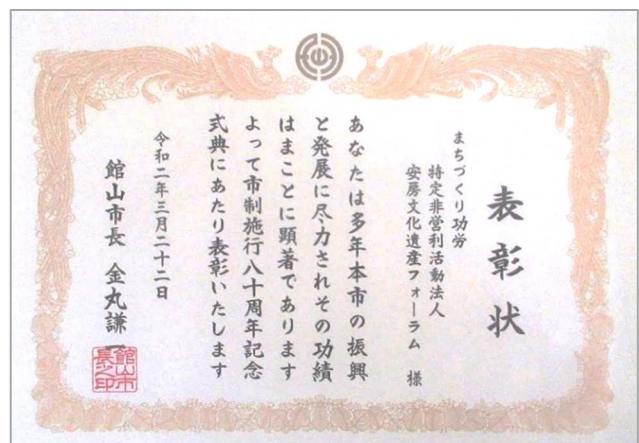 表彰状
まちづくり功労
特定非営利活動法人
安房文化遺産フォーラム 様
あなたは多年本市の振興
と発展に尽力されその功績
はまことに顕著であります
よって市制施行八十周年記念
式典にあたり表彰いたします
令和二年三月二十二日
館山市長 金丸謙一
館山市長之印